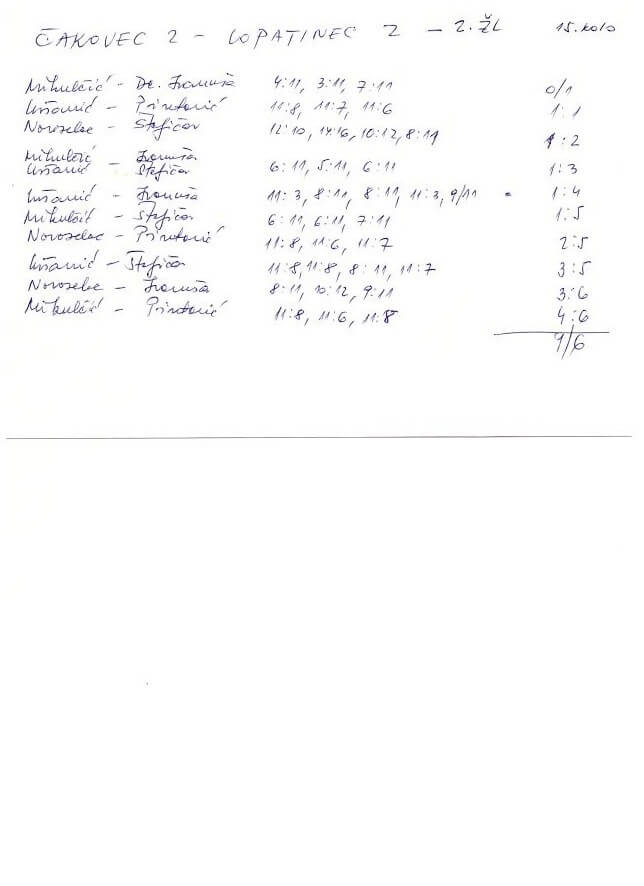 ČAKOVEC 2 - LOPATINEC 2 - 2. ŽL 15. kolo
Mikulčić - Dr. Franuša 4:11, 3:11, 7:11 0/1
- Pintarić 11:8, 11:7, 11:6 1:1
Novoselec - Štefičar 12:10, 14:16, 10:12, 8:11 1:2
Mikulčić - Franuša
Štefičar 6:11, 5:11, 6:11 1:3
- Franuša 11:3, 8:11, 8:11, 11:3, 9/11 = 1:4
Mikulčić - Štefičar 6:11, 6:11, 7:11 1:5
Novoselec - Pintarić 11:8, 11:6, 11:7 2:5
- Štefičar 11:8, 11:8, 8:11, 11:7 3:5
Novoselec - Franuša 8:11, 10:12, 9:11 3:6
Mikulčić - Pintarić 11:8, 11:6, 11:8 4:6
4/6